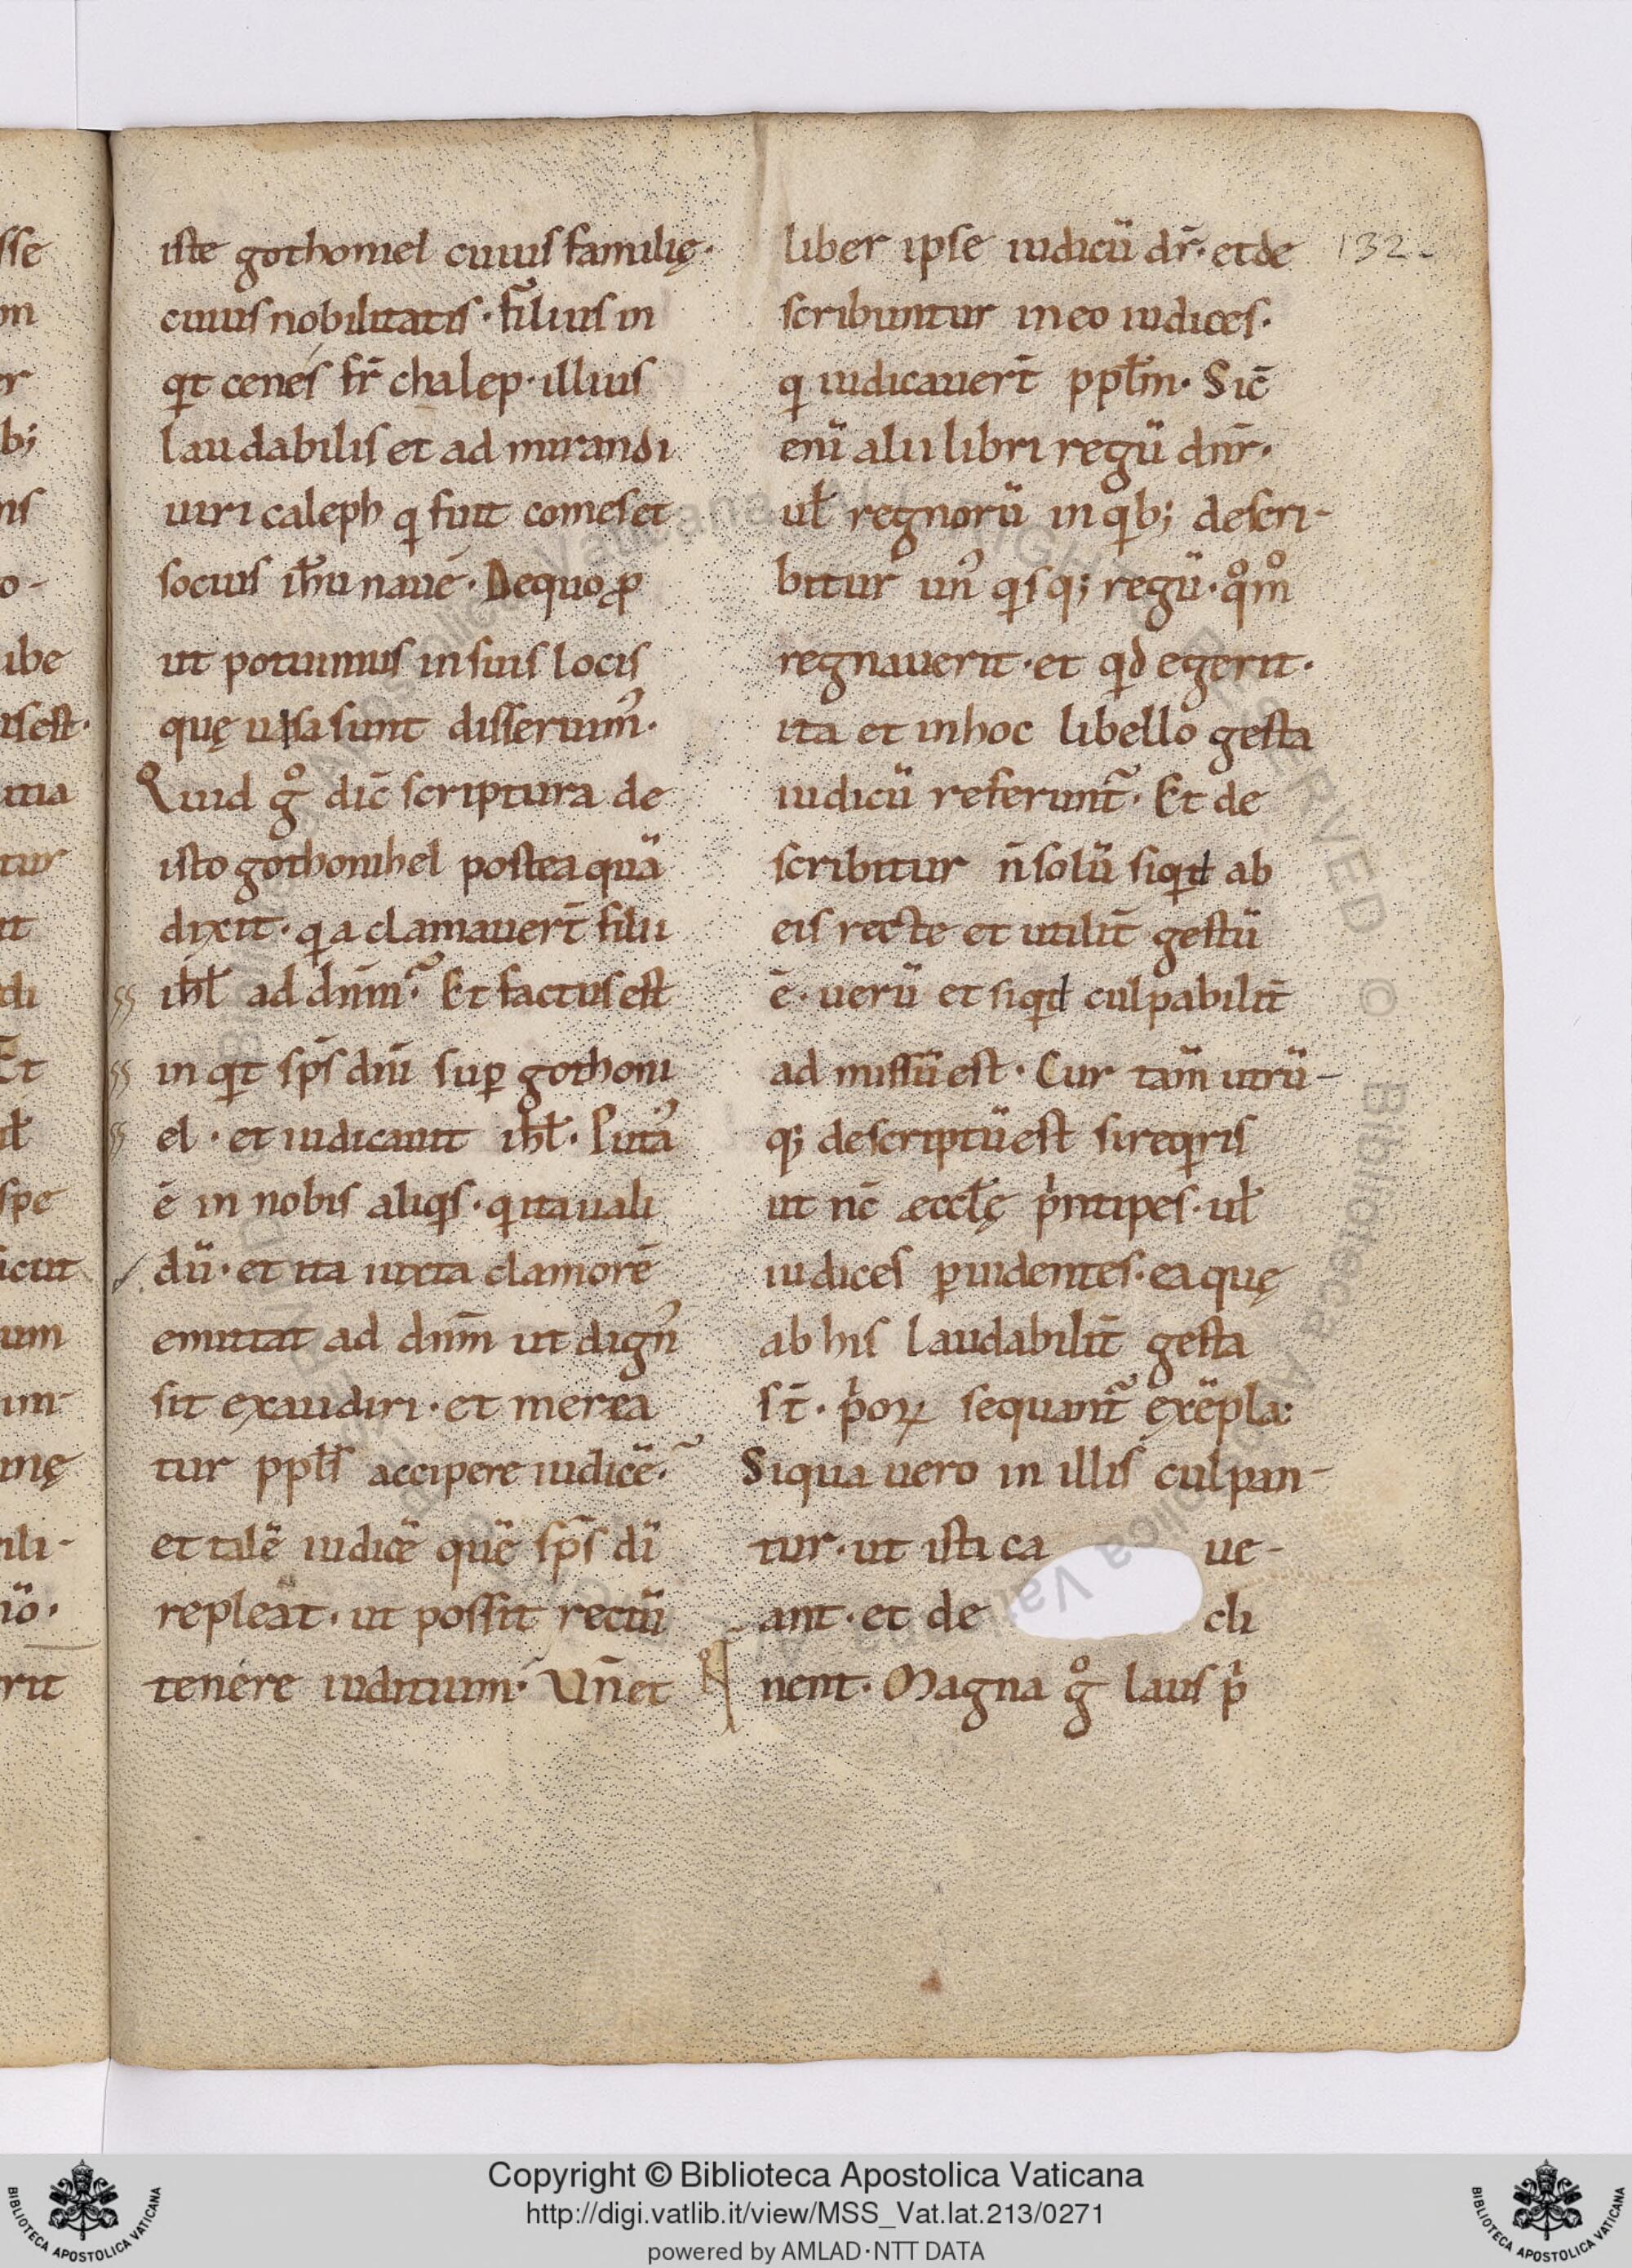 iste gothomel cuuis familię·
cuius nobilitatis · filius in
qt cenes fr̄ chalep · illius
laudabilis et ad mirandi
uiri caleph q fuit comes et
socius ih̄u naue · De quo ꝓ
ut potuimus in suis locis
quę uisa sunt disseruim᾽·
Quid gͦ dic̄ scriptura de
isto gothonihel posteaquā
dixit · q a clamauer̄t filii
ihl̄ ad dnm̄ · Et factus est
in qt sp̄s dn̄i suꝑ gothoni
el · et iudicauit ihl̄ · Puta᾽
ē in nobis aliqs · q ita uali
dū · et ita iuxta clamorē
emittat ad dnm̄ ut dign᾽
sit exaudiri · et merea
tur ppl̄s accipere iudicē ·
et talē iudicē quē sp̄s dī
repleāt · ut possit rectū
tenere iuditium · Vn̄ et
liber ipse iudicū dr̄ · et de
scribuntur in eo iudices ·
q iudicauer̄t ppl̄m · Sic̄
enī alii libri regū dn̄r ·
ul̄ regnorū in qb; descri-
bitur un᾽ qsq; regū · qͦmͦ
regnauerit · et qd egerit ·
ita et in hoc libello gesta
iudicū referunt̄ · Et de
scribitur n̄ solū siqd ab
eis recte et utilit̄ gestū
ē · uerū et siqd culpabilit̄
ad missū est · Cur tam̄ utrū-
q; descriptū est si reqris
ut nc̄ æccl̄ę pͥntipes · ul̄
iudices puidentes · ea quę
ab his laudabilit̄ gesta
st̄ · pͥoꝝ sequant̄ exēpla·
Siqua uero in illis culpan-
tur · ut isti ca ue-
ant · et de cli
nent · Magna gͦ laus pͥ
132
Copyright © Biblioteca Apostolica Vaticana
http://digi.vatlib.it/view/MSS_Vat.lat.213/0271
powered by AMLAD·NTT DATA